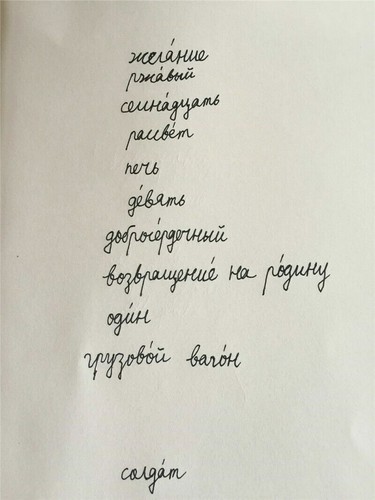 жела́ние
ржа́вый
семна́дцать
рассве́т
печь
де́вять
добросе́рдечный
возвращение́ на ро́дину
оди́н
грузово́й ваго́н
солда́т